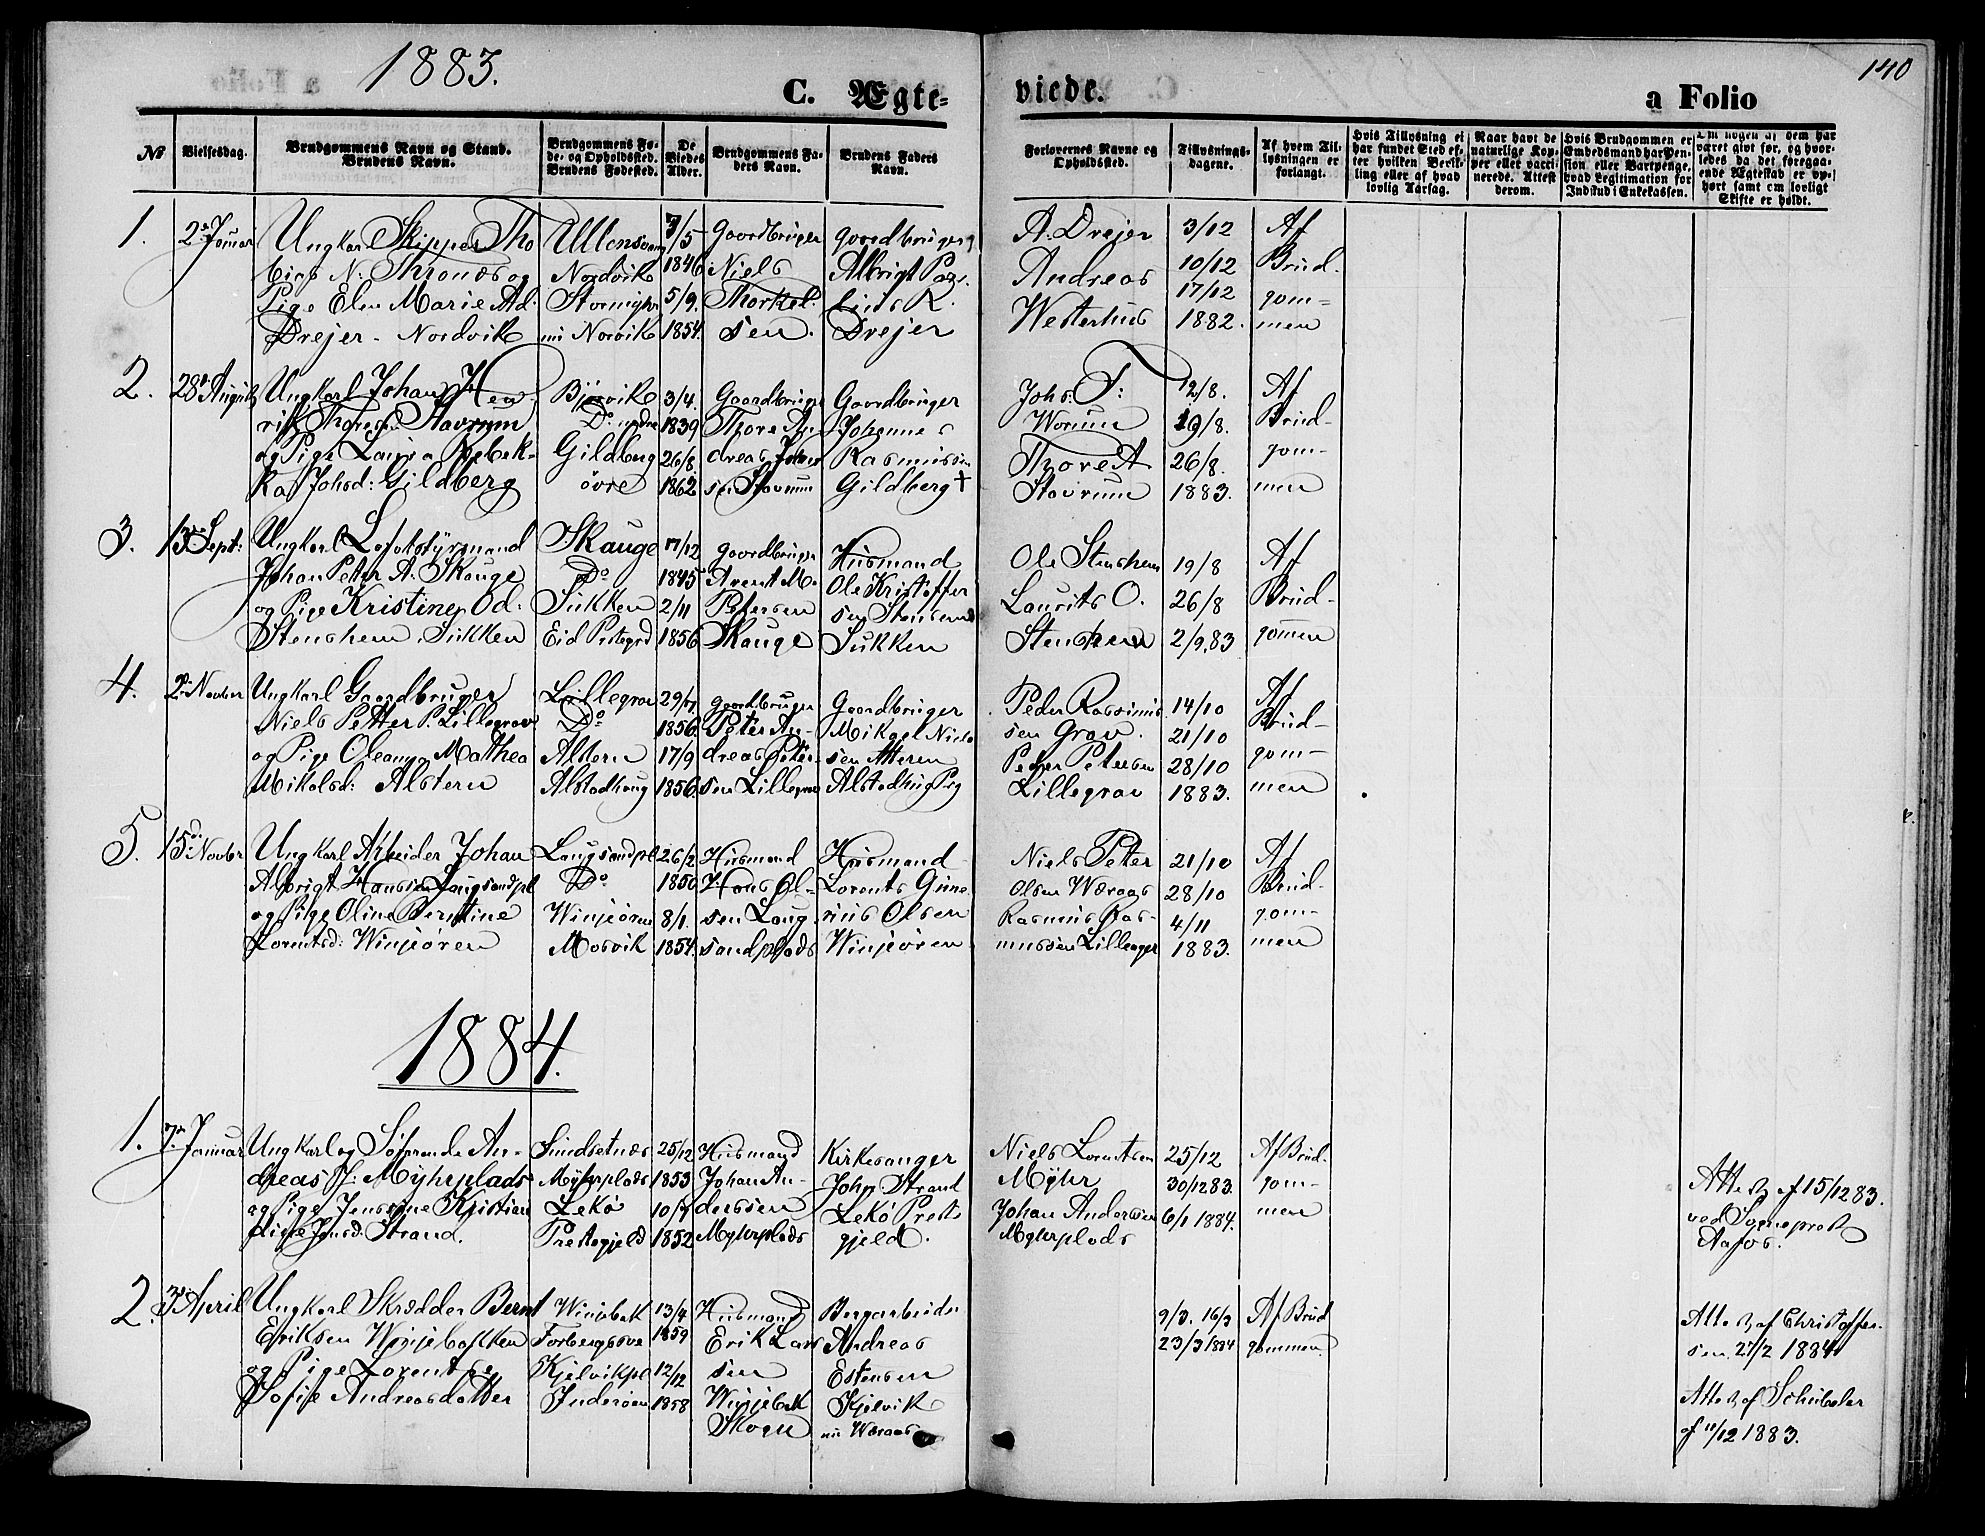 1883.
C. Ægte=
viede.
a Folio
140
No
Vielsesdag.
Brudgommens Navn og Stand.
Brudens Navn.
Brudgommens Fø-
de- og Opholdssted.
Brudens Fødested.
De
Viedes
Alder.
Brudgommens Fa-
ders Navn.
Brudens Faders
Navn.
Forlovernes Navne og
Opholdssted.
Tillysnings-
dagene.
Af hvem Til-
lysningen er
forlangt.
Hvis Tillysning ei
har fundet Sted ef-
ter hvilken Bevil-
ling eller af hvad
lovlig Aarsag.
Naar havt de
naturlige Kop-
per eller vacci-
nerede. Attest
derom.
Hvis Brudgommen er
Embedsmand har Pen-
sion eller Vartpenge,
hvad Legitimation for
Indskud i Enkekassen.
Om nogen af dem har
været givt før, og hvor-
ledes da det foregaa-
ende Ægteskab er op-
hørt samt om lovligt
Skifte er holdt.
1.
2 Januar
Ungkarl Skipper Tho
bias N. Thronæs og
Pige Elen Marie Ad:
Drejer - Nordvik
Ullensvang
Nordvik
ni Norvik
7/5
1846
5/9.
1854.
Gaardbruger
Niels
Thorkel-
sen.
Gaardbruger
Albrigt Pag.
R.
Drejer
A. Drejer
Andreas
Westerhus
3/12
10/12
17/12
1882.
Af
Brud-
gom-
men
2.
28 August
Ungkarl Johan Hen-
rik Thoresen Stavrum
og Pige Laura Rebek-
ka Johsd: Gildberg
Bjørvik
Do nedre
Gildberg
øvre
3/4.
1839
26/8.
1862
Gaardbruger
Thore An-
dreas Johan
sen Stavrum
Gaardbruger
Johannes
Rasmussen
Gildberg †
Johs. T:
Worum
Thore A
Stavrum
12/8.
19/8.
26/8.
1883.
Af
Brud-
gom-
men
3.
13 Sept:
Ungkarl
Johan Peter A. Skauge
og Pige Kristine Od:
Stenshem Sukken
Skauge
Do
Sukken
Eid Prstegrd
17/12
1845
2/11
1856
Gaardbruger
Arent M.
Petersen
Skauge
Husmand
Ole Kristoffer
sen
Sukken
Ole Stenshem
Laurits O.
Stenshem
19/8
26/8
2/9.83
Af
Brud-
gommen
4.
2 Novber
Ungkarl Gaardbruger
Niels Petter P. Lillegrav
og Pige Oleana Mathea
Mikalsd: Alstern
Lillegrav
Do
Alstern
Alstadhaug
29/11
1856.
17/9
1856.
Gaardbruger
Peter An-
dreas Peter-
sen Lillegrav
Gaardbruger
Mikael Niels
sen Alteren
Alstadhug Pig
Peder Rasmus
sen Grav.
Peder Petersen
Lillegrav
14/10
21/10
28/10
1883.
Af
Brud-
gom-
men
5.
15 Novber
Ungkarl Arbeider Johan
Albrigt Hanssen Laugsandpl
og Pige Oline Berntine
Lorentsd: Winjeøren
Laugsandpl
Do
Winjeøren
Mosvik
26/2
1850
8/1.
1854.
Husmand
Hans Ol-
sen Laug-
sandplads
Husmand
Lorents Gune-
rius Olsen
Winjeøren
Niels Peter
Olsen Wæraas
Rasmus Ras-
mussen Lilleager
21/10
28/10
4/11
1883.
Af
Brud-
gom-
men
1884.
1.
7 Januar
Ungkarl og Søfarende An-
dreas J: Mÿhrplads
og Pige Jenssine Kristian
Jensd: Strand.
Sundsetnæs
Mÿhrplads
Lekø
Prestegjeld
25/12
1853
10/7
1852
Husmand
Johan An-
derssen
Myhrplads
Kirkesanger
Johs. Strand
Lekø Prest-
gjeld.
Niels Lorentsen
Mÿhr
Johan Anderssen
Myhrplads
25/12
30/12 83.
6/1 1884.
Af Brud-
gom-
men
Attest af 15/12 83.
ved Sognepræst
Aafos.
2.
3 April
Ungkarl Skrædder Bernt
Eriksen Winjebakken
og Pige Lorentse
Sofie Andreasdatter
Winjebak
Forbergsøve
Kjelvikpl
Inderøen
13/4
1859
12/12
1858
Husmand
Erik Lars
sen
Winjebak
Skogn
Bergarbeider
Andreas
Estensen
Kjelvik
nu Wæraas
9/3. 16/3
23/3 1884
Af Brud
gommen.
Attest af Christoffer-
sen 27/2 1884.
Attest af Schübeler
af 11/12 1883.